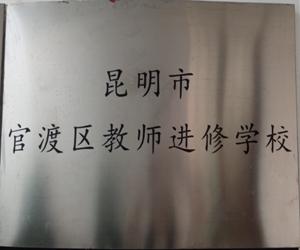 昆明市
官渡区教师进修学校